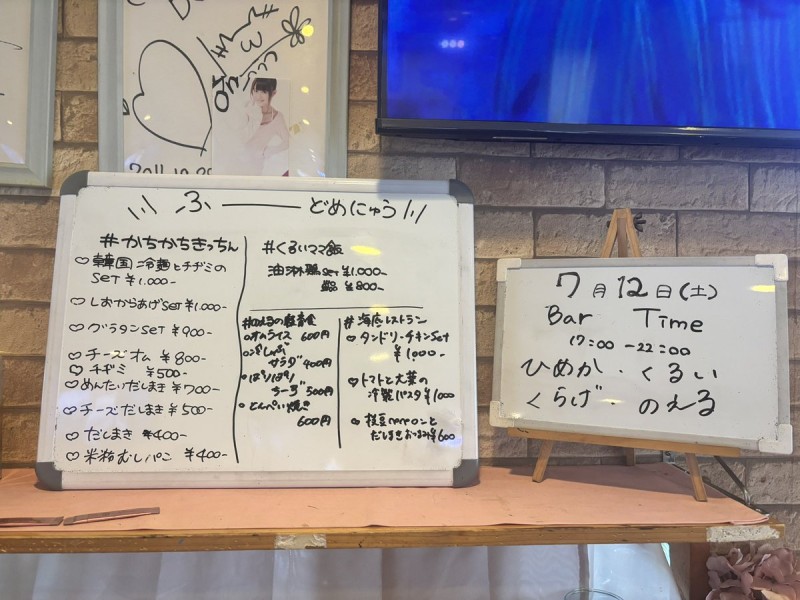 ふーどめにゅう
#かちかちきっちん
♡韓国冷麺とチヂミの
SET ¥1.000-
♡しおからあげSET ¥1.000-
♡グラタンSET ¥900-
♡チーズオム ¥800-
♡チヂミ ¥500-
♡めんたいだしまき ¥700-
♡チーズだしまき ¥500-
♡だしまき ¥400-
♡米粉むしパン ¥400-
#くるいママ飯
油淋鶏set ¥1.000-
単品 ¥800-
#のえるの軽食
○オムライス 600円
サラダ 400円
○ぱりぱり
ちーず 500円
○とんぺい焼き
600円
#海底レストラン
♡タンドリーチキンSet
¥1000-
♡トマトと大葉の
冷製パスタ ¥1000
♡枝豆ペペロンと
だしまきおつまみ ¥600
7月12日(土)
Bar Time
17:00-22:00
ひめか・くるい
くらげ・のえる